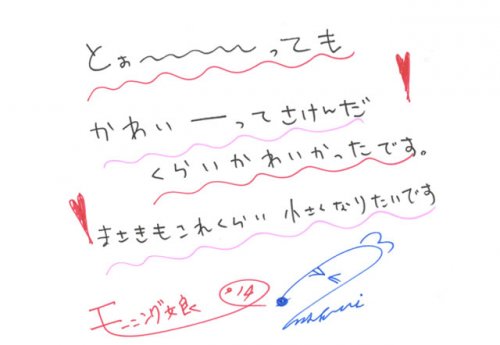 とぉ〜〜〜〜っても
かわいーってさけんだ
くらいかわいかったです。
まさきもこれくらい 小さくなりたいです
モーニング娘 '14